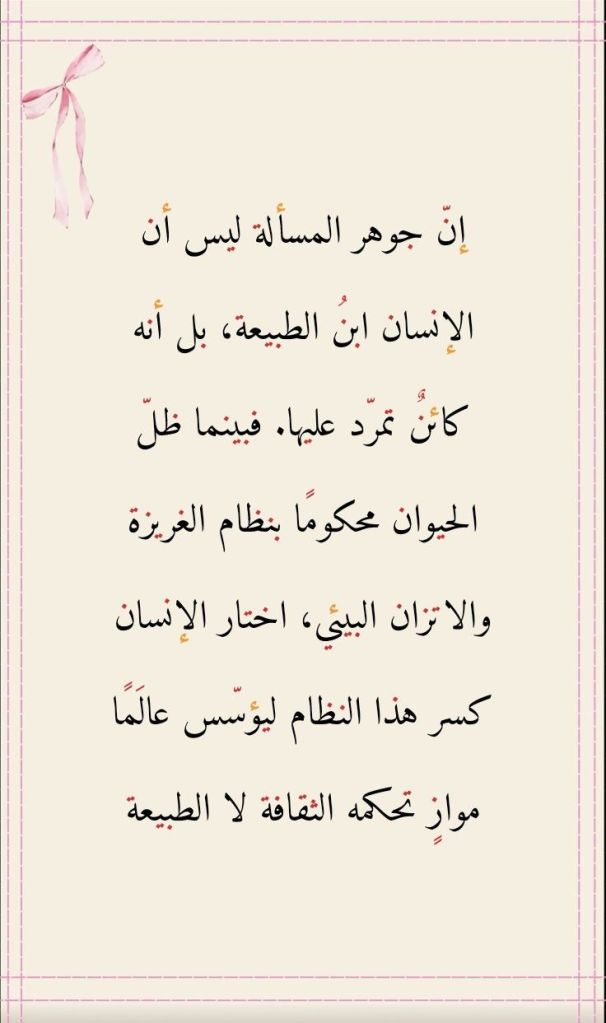 إنّ جوهر المسألة ليس أن
الإنسان ابنُ الطبيعة، بل أنه
كائنٌ تمرّد عليها. فبينما ظلّ
الحيوان محكومًا بنظام الغريزة
والاتزان البيئي، اختار الإنسان
كسر هذا النظام ليؤسّس عالَمًا
موازٍ تحكمه الثقافة لا الطبيعة